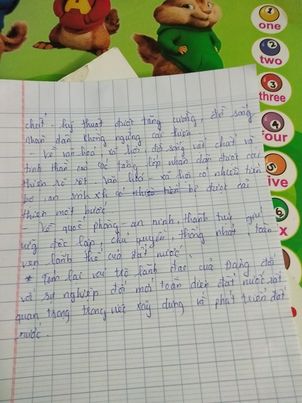 one
two
three
four
ive
x
chất - kỹ thuật được tăng cường, đời sống
nhân dân không ngừng cải thiện
- Về văn hoá xã hội đời sống vật chất và
tinh thần của các tầng lớp nhân dân được cải
thiện rõ rệt. văn hoá - xã hội có nhiều tiến
bộ an sinh xh có bộ được cải
thiện một bước.
Về quốc phòng an ninh, thành tựu giữ
vững độc lập, chủ quyền, thống nhất, toàn
vẹn lãnh thổ của đất nước.
* Tóm lại vai trò lãnh đạo của Đảng đối
với sự nghiệp đổi mới toàn diện đất nước rất
quan trọng trong xây dựng và phát triển đất
nước.